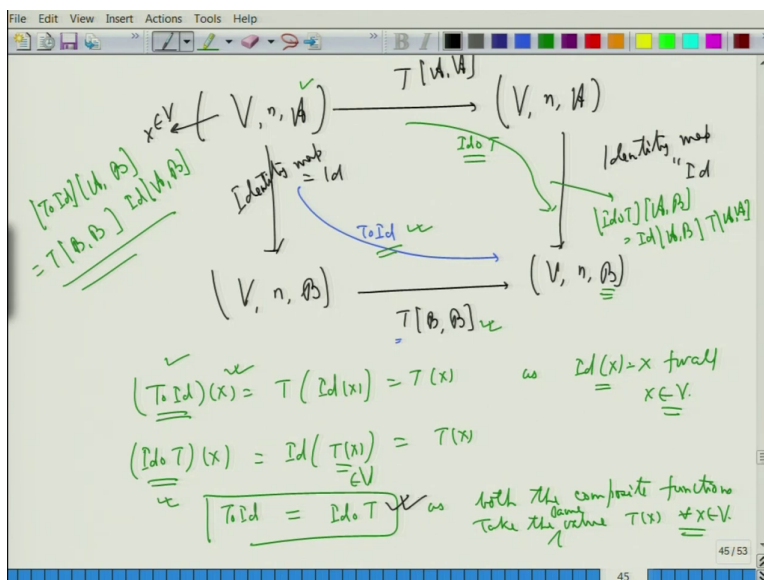 File Edit View Insert Actions Tools Help
T[𝔸,𝔸]
x∈V ← (V, n, 𝔸) → (V, n, 𝔸)
Identity map = Id
Identity map " Id
IdoT
[ToId][𝔸,𝔹]
= T[𝔹,𝔹] Id[𝔸,𝔹]
[IdoT][𝔸,𝔹]
= Id[𝔸,𝔹] T[𝔸,𝔸]
ToId
(V, n, 𝔹) → (V, n, 𝔹)
T[𝔹,𝔹]
(ToId)(x) = T(Id(x)) = T(x) as Id(x)=x for all
x∈V.
(IdoT)(x) = Id(T(x)) = T(x)
∈V
ToId = IdoT as both the composite functions
Take the same value T(x) ∀x∈V.
45/53
45